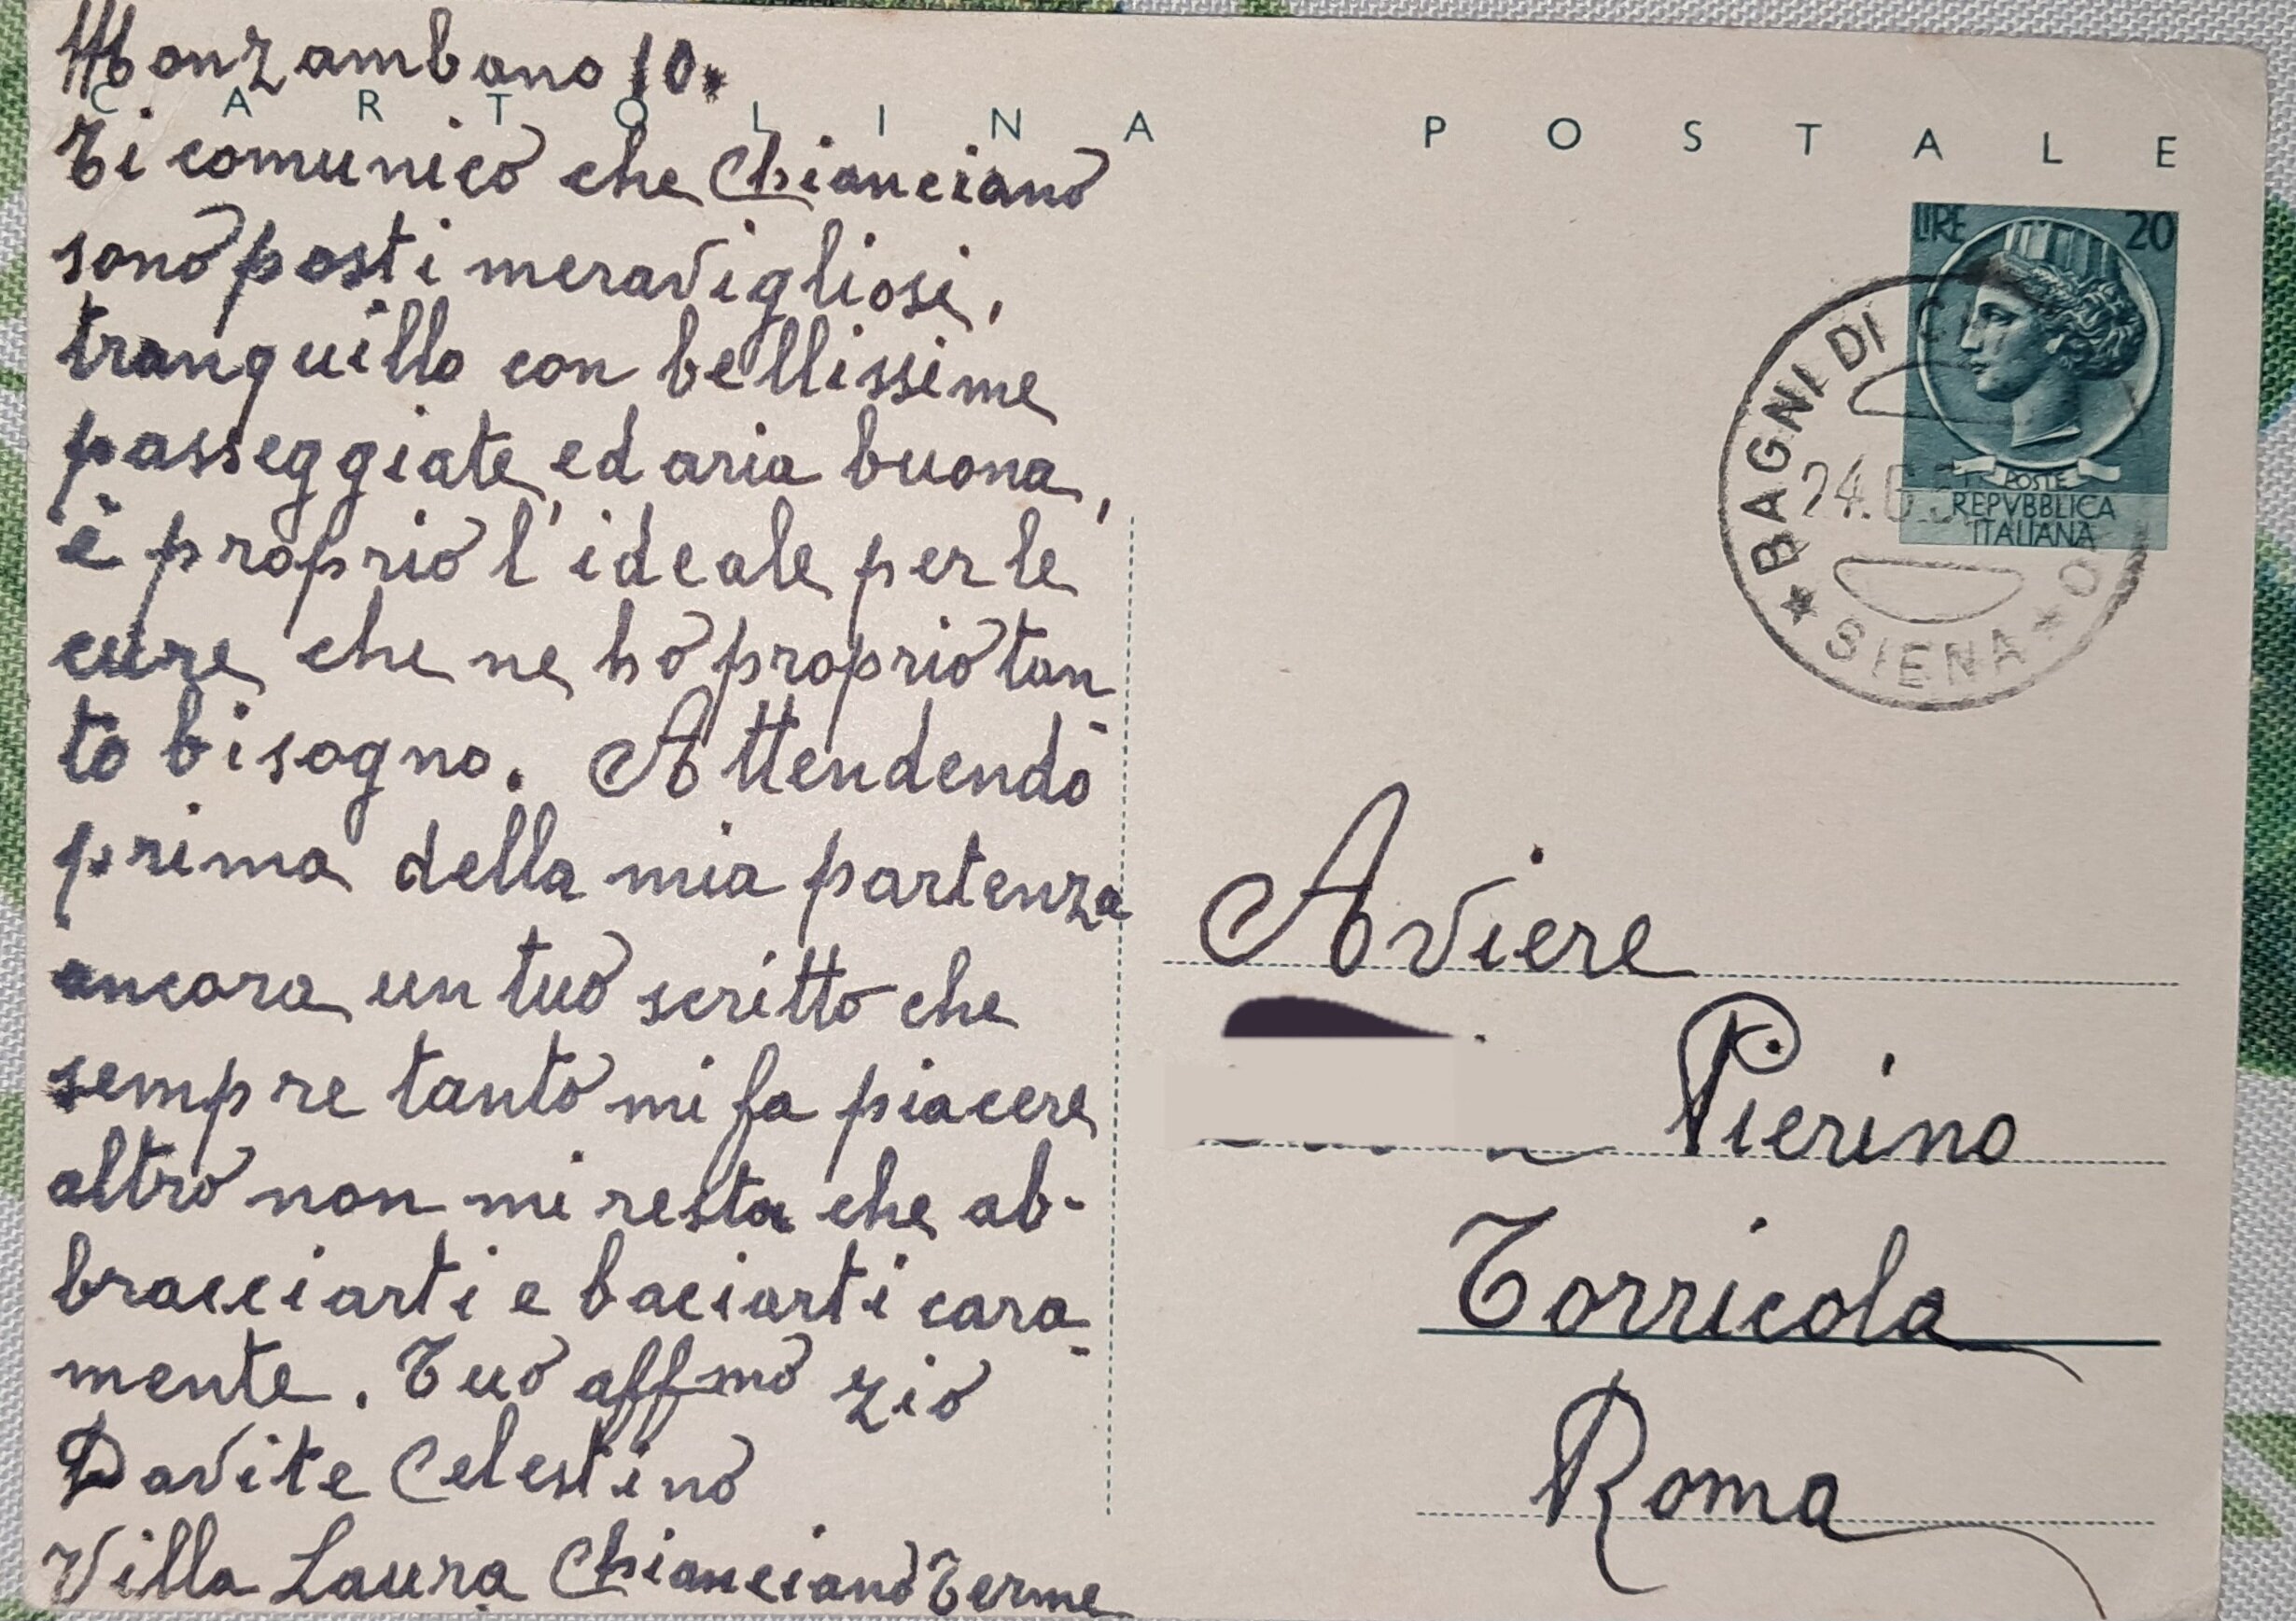 Monzambano 10.
CARTOLINA POSTALE
Ti comunico che Chianciano
sono posti meravigliosi,
tranquillo con bellissime
passeggiate, ed aria buona,
è proprio l'ideale per le
cure che ne ho proprio tan-
to bisogno. Attendendo
prima della mia partenza
ancora un tuo scritto che
sempre tanto mi fa piacere
altro non mi resta che ab-
bracciarti e baciarti cara-
mente. Tuo affmo zio
Davite Celestino
Villa Laura Chianciano Terme
LIRE 20
POSTE
REPVBBLICA
ITALIANA
BAGNI DI
24.6
SIENA
Aviere
Pierino
Torricola
Roma